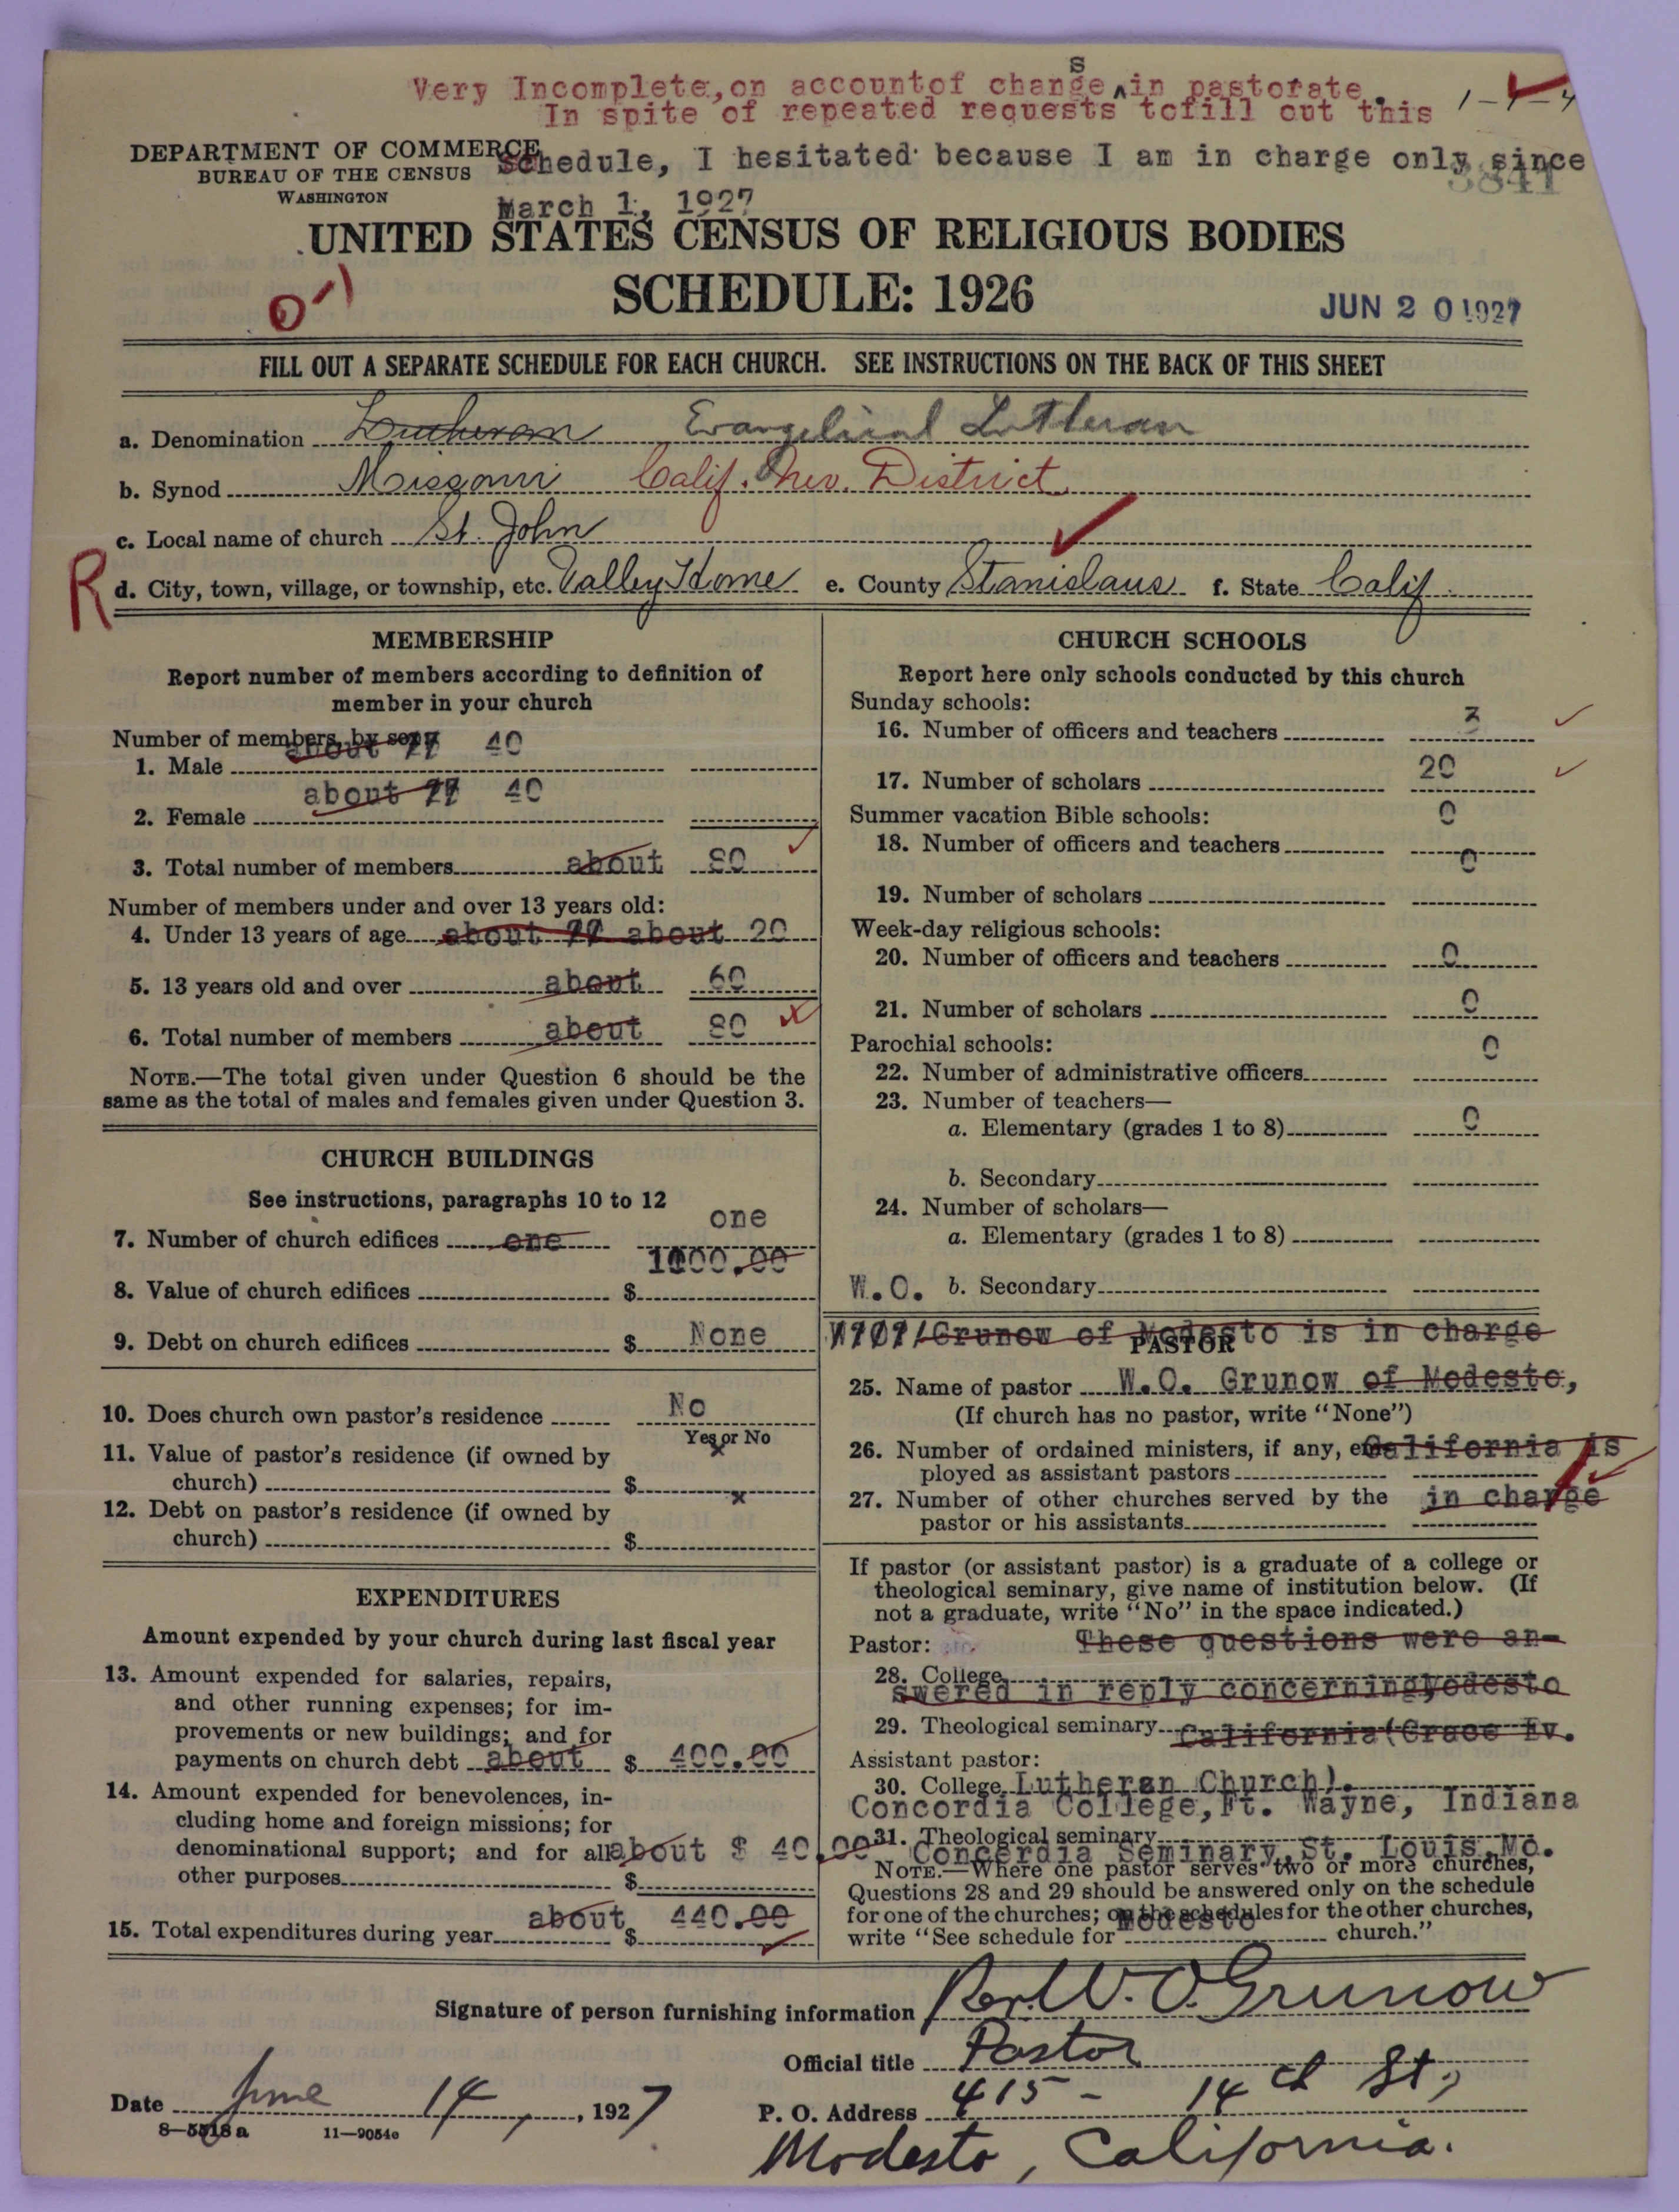 s
Very Incomplete, on accountof change ^in pastorate.
In spite of repeated requests tofill out this
DEPARTMENT OF COMMERCE
Schedule, I hesitated because I am in charge only since
BUREAU OF THE CENSUS
3841
WASHINGTON
March 1, 1927
UNITED STATES CENSUS OF RELIGIOUS BODIES
SCHEDULE: 1926
JUN 20 1927
FILL OUT A SEPARATE SCHEDULE FOR EACH CHURCH. SEE INSTRUCTIONS ON THE BACK OF THIS SHEET
a. Denomination Lutheran Evangelical Lutheran
b. Synod Missouri Calif. Nev. District
c. Local name of church St. John
R d. City, town, village, or township, etc. Valley Home e. County Stanislaus f. State Calif.
MEMBERSHIP
Report number of members according to definition of
member in your church
Number of members, by sex:
about 40
1. Male
about 40
2. Female
3. Total number of members about 80
Number of members under and over 13 years old:
4. Under 13 years of age about about 20
5. 13 years old and over about 60
6. Total number of members about 80
NOTE.—The total given under Question 6 should be the
same as the total of males and females given under Question 3.
CHURCH BUILDINGS
See instructions, paragraphs 10 to 12
one
7. Number of church edifices one
1000.00
8. Value of church edifices $
9. Debt on church edifices $ None
10. Does church own pastor's residence No
Yes or No
11. Value of pastor's residence (if owned by
x
church) $
x
12. Debt on pastor's residence (if owned by
church) $
EXPENDITURES
Amount expended by your church during last fiscal year
13. Amount expended for salaries, repairs,
and other running expenses; for im-
provements or new buildings; and for
payments on church debt about $ 400.00
14. Amount expended for benevolences, in-
cluding home and foreign missions; for
denominational support; and for all about $ 40.00
other purposes $
15. Total expenditures during year about $ 440.00
CHURCH SCHOOLS
Report here only schools conducted by this church
Sunday schools:
16. Number of officers and teachers 3
17. Number of scholars 20
Summer vacation Bible schools: 0
18. Number of officers and teachers
0
19. Number of scholars
Week-day religious schools:
20. Number of officers and teachers 0
21. Number of scholars 0
Parochial schools: 0
22. Number of administrative officers
23. Number of teachers—
a. Elementary (grades 1 to 8) 0
b. Secondary
24. Number of scholars—
a. Elementary (grades 1 to 8)
W.O. b. Secondary
Grunow of Modesto is in charge
PASTOR
25. Name of pastor W.O. Grunow of Modesto,
(If church has no pastor, write "None")
26. Number of ordained ministers, if any, em- California is
ployed as assistant pastors
27. Number of other churches served by the in charge
pastor or his assistants
If pastor (or assistant pastor) is a graduate of a college or
theological seminary, give name of institution below. (If
not a graduate, write "No" in the space indicated.)
Pastor: These questions were an-
28. College
swered in reply concerningModesto
29. Theological seminary California(Grace Ev.
Assistant pastor:
30. College Lutheran Church).
Concordia College, Ft. Wayne, Indiana
31. Theological seminary
Concordia Seminary, St. Louis, Mo.
NOTE.—Where one pastor serves two or more churches,
Questions 28 and 29 should be answered only on the schedule
for one of the churches; on the schedules for the other churches,
Modesto
write "See schedule for church."
Signature of person furnishing information Rev. W. O. Grunow
Official title Pastor
Date June 14, 1927
P. O. Address 415 - 14th St.,
8—5518a 11—9054e
Modesto, California.